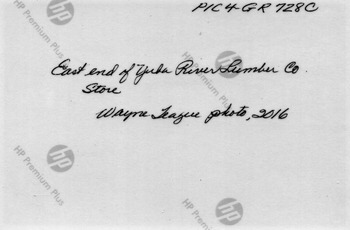 PIC 4-GR 728C
East end of Yuba River Lumber Co.
Store
Wayne Teague photo, 2016
hp
HP Premium Plus
hp
HP Premium Plus
hp
HP Premium Plus
hp
HP Premium Plus